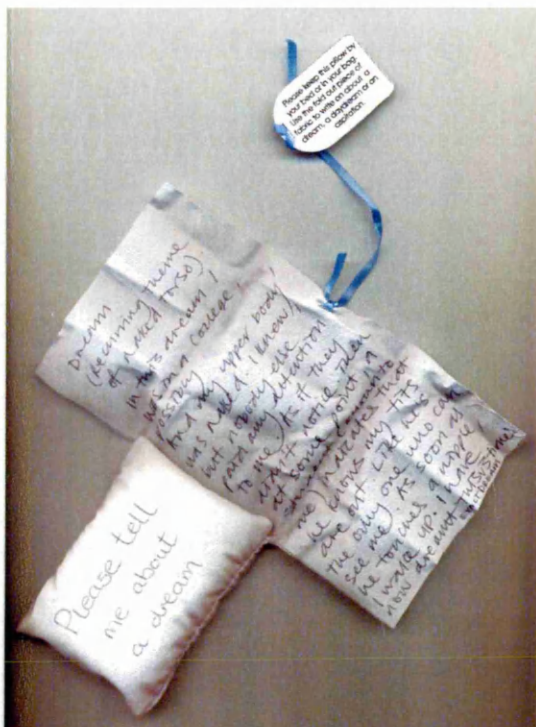 Please keep this pillow by
your bed or in your bag.
Use the fold out piece of
fabric to write on about a
dream, a daydream or an
aspiration.
Dream
(becoming theme
of naked torso)
in this dream I
was in a college
possibly
and my upper body
was naked (I knew)
but nobody else
paid any attention
to me. As if they
didn't notice. Then
at some point a
he knows my tits
are out. Like he's
the only one who can
see me. As soon as
he touches a nipple
I wake up. I have
now dreamt this
Please tell
me about
a dream